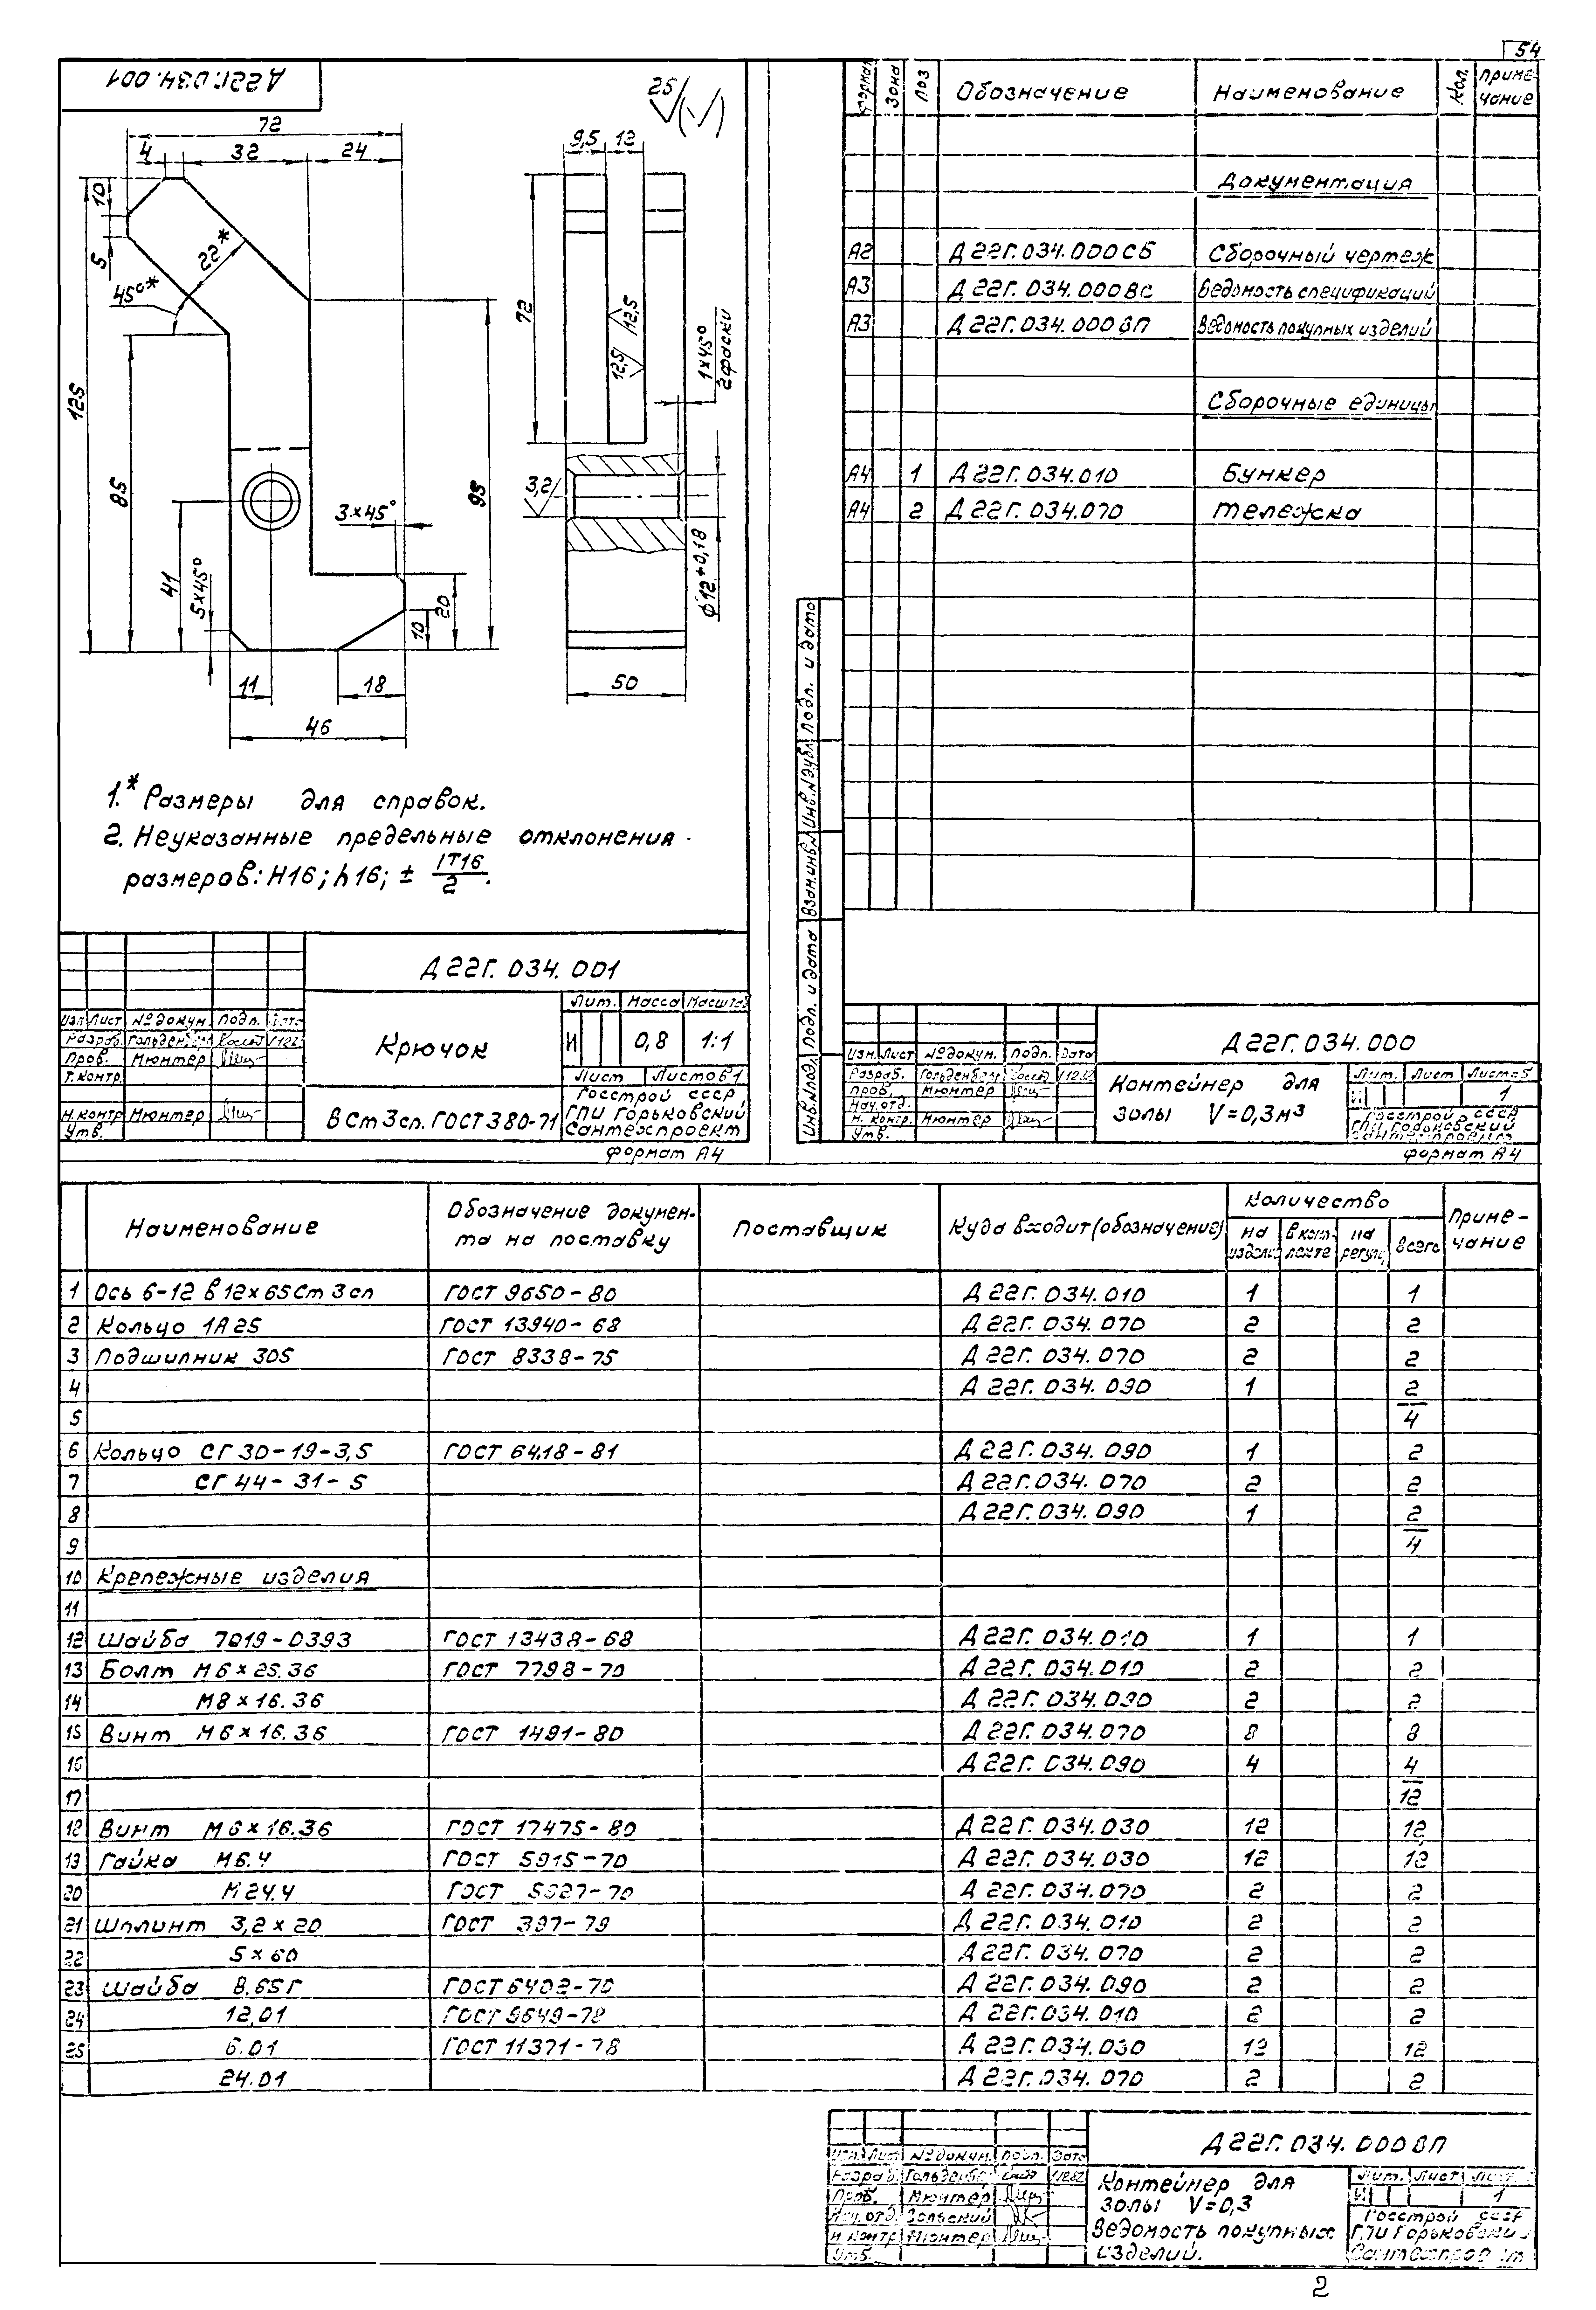 54
Д22Г.034.001
25
72
4 32 24
10
5
22*
45°*
125
85
41
5×45°
3×45°
95
20
10
11
18
46
9,5 12
72
12,5
12,5
1×45°
2 фаски
3,2
ϕ12+0,18
50
1.* Размеры для справок.
2. Неуказанные предельные отклонения
размеров: H16; h16; ± IT16/2.
Д22Г.034.001
Крючок
Лит. Масса Масштаб
И 0,8 1:1
Лист Листов 1
ВСт3сп. ГОСТ 380-71
Госстрой СССР
ГПИ Горьковский
Сантехпроект
Изм Лист №докум. Подп. Дата
Разраб.
Пров. Мюнтер
Т.контр.
Н.контр Мюнтер
Утв.
Формат А4
Формат Зона Поз. Обозначение Наименование Кол. Приме-
чание
Документация
А2 Д22Г.034.000СБ Сборочный чертеж
А3 Д22Г.034.000ВС Ведомость спецификаций
А3 Д22Г.034.000ВП Ведомость покупных изделий
Сборочные единицы
А4 1 Д22Г.034.010 Бункер
А4 2 Д22Г.034.070 Тележка
Инв.№подл. Подп. и дата Взам.инв.№ Инв.№дубл. Подп. и дата
Д22Г.034.000
Изм. Лист №докум. Подп. Дата
Разраб.
Пров. Мюнтер
Нач.отд.
Н.контр. Мюнтер
Утв.
Контейнер для
золы V=0,3м³
Лит. Лист Листов
И 1
Госстрой СССР
ГПИ Горьковский
Сантехпроект
Формат А4
Наименование Обозначение докумен-
та на поставку Поставщик Куда входит (обозначение) Количество Приме-
чание
на изделие в комп-лекте на регул. всего
1 Ось 6-12 в12×65Ст3сп ГОСТ 9650-80 Д22Г.034.010 1 1
2 Кольцо 1А25 ГОСТ 13940-68 Д22Г.034.070 2 2
3 Подшипник 305 ГОСТ 8338-75 Д22Г.034.070 2 2
4 Д22Г.034.090 1 2
5 4
6 Кольцо СГ30-19-3,5 ГОСТ 6418-81 Д22Г.034.090 1 2
7 СГ44-31-5 Д22Г.034.070 2 2
8 Д22Г.034.090 1 2
9 4
10 Крепежные изделия
11
12 Шайба 7019-0393 ГОСТ 13438-68 Д22Г.034.010 1 1
13 Болт М6×25.36 ГОСТ 7798-70 Д22Г.034.010 2 2
14 М8×16.36 Д22Г.034.090 2 2
15 Винт М6×16.36 ГОСТ 1491-80 Д22Г.034.070 8 8
16 Д22Г.034.090 4 4
17 12
18 Винт М6×16.36 ГОСТ 17475-80 Д22Г.034.030 12 12
19 Гайка М6.4 ГОСТ 5915-70 Д22Г.034.030 12 12
20 М24.4 ГОСТ Д22Г.034.070 2 2
21 Шплинт 3,2×20 ГОСТ 397-79 Д22Г.034.010 2 2
22 5×60 Д22Г.034.070 2 2
23 Шайба 8.65Г ГОСТ 6402-70 Д22Г.034.090 2 2
24 12.01 ГОСТ 9649-78 Д22Г.034.010 2 2
25 6.01 ГОСТ 11371-78 Д22Г.034.030 12 12
24.01 Д22Г.034.070 2 2
Д22Г.034.000ВП
Изм. Лист №докум. Подп. Дата
Разраб.
Пров. Мюнтер
Нач.отд. Зольский
Н.контр Мюнтер
Утв.
Контейнер для
золы V=0,3
Ведомость покупных
изделий.
Лит. Лист
И 1
Госстрой СССР
ГПИ Горьковский
2